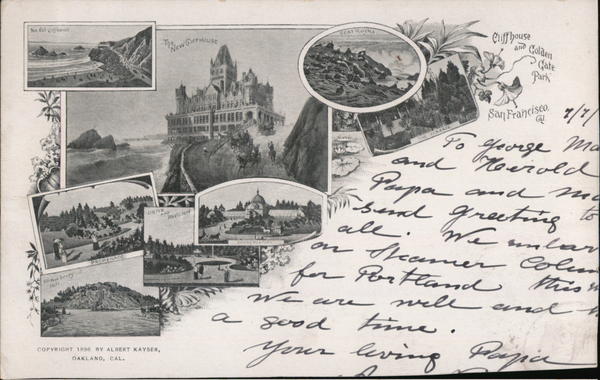 The Old Cliffhouse
The New Cliffhouse
Seal Rocks
Cliffhouse
and Golden
Gate
Park
San Francisco,
Cal
7/7/
To George Ma
and Herold
Papa and ma
send greeting to
all. We embar
on Steamer Colum
for Portland this m
We are well and h
a good time.
Your loving Papa
Strawberry
Hill
COPYRIGHT 1896 BY ALBERT KAYSER,
OAKLAND, CAL.